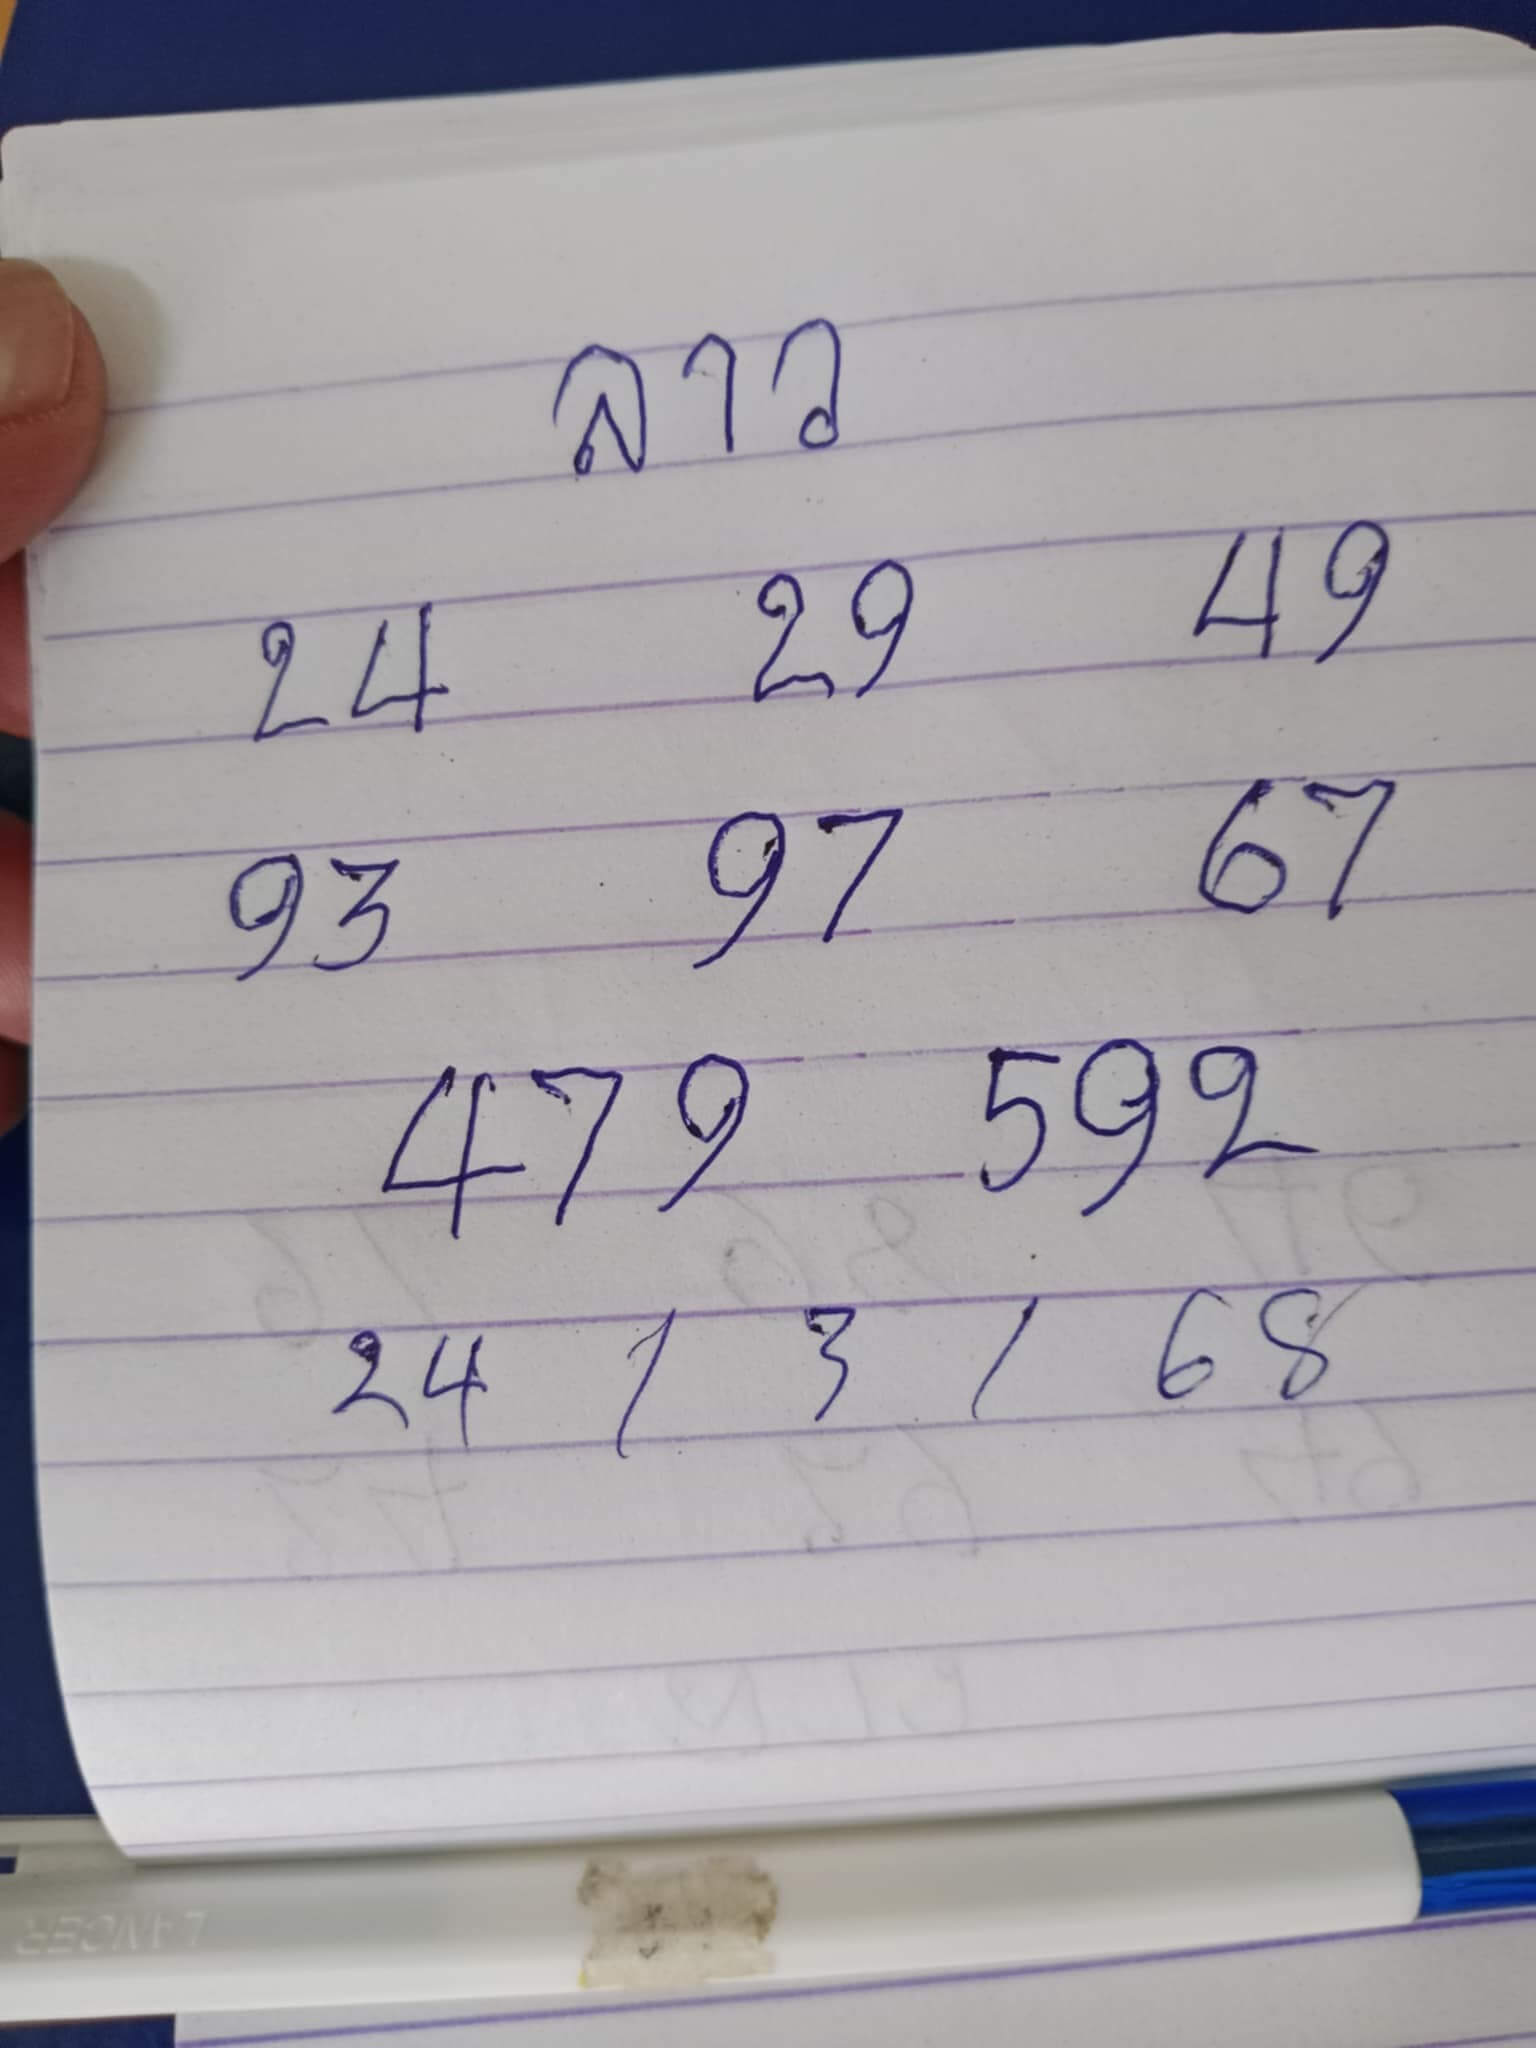 ลาว
24 29 49
93 97 67
479 592
24 / 3 / 68
LANCER